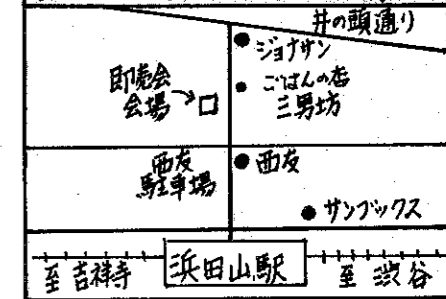 井の頭通り
ジョナサン
即売会
会場
ごはんの店
三男坊
西友
駐車場
西友
サンブックス
至吉祥寺
浜田山駅
至渋谷